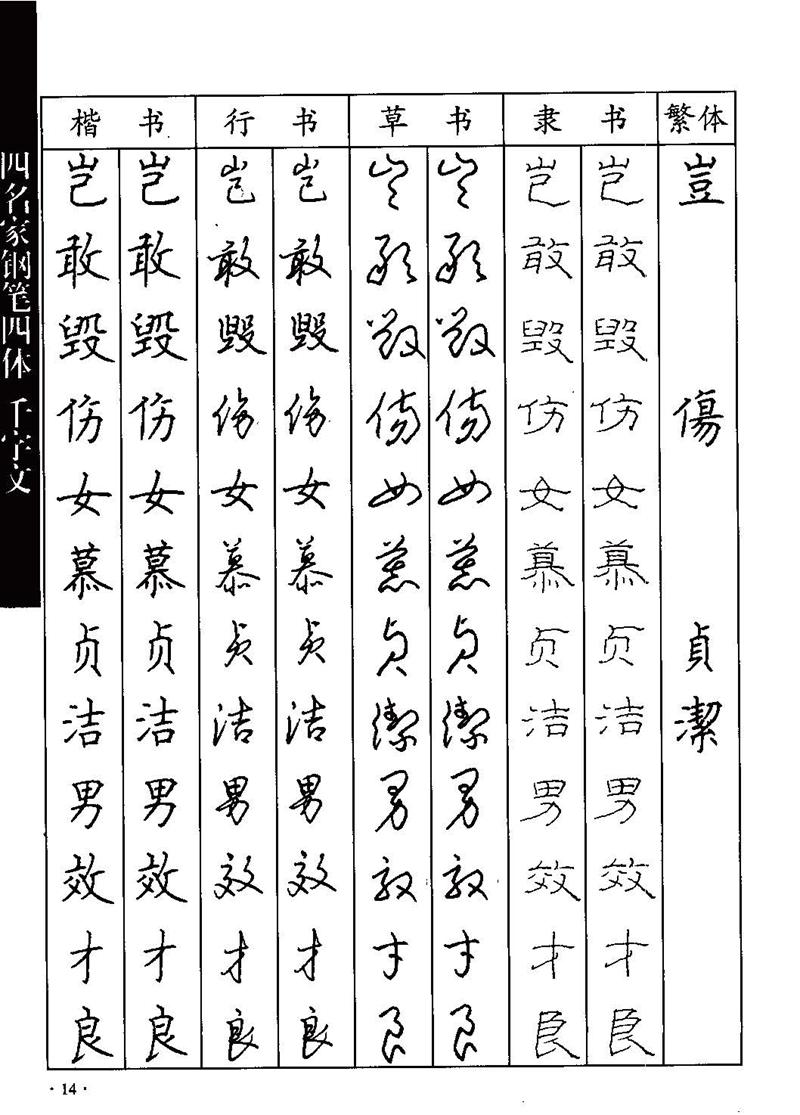 四名家钢笔四体 千字文
楷书 行书 草书 隶书 繁体
岂 岂 岂 岂 岂 岂 岂 岂 豈
敢 敢 敢 敢 敢 敢 敢 敢
毁 毁 毁 毁 毁 毁 毁 毁
伤 伤 伤 伤 傷 傷 伤 伤 傷
女 女 女 女 女 女 女 女
慕 慕 慕 慕 慕 慕 慕 慕
贞 贞 贞 贞 贞 贞 贞 贞 貞
洁 洁 洁 洁 潔 潔 洁 洁 潔
男 男 男 男 男 男 男 男
效 效 效 效 效 效 效 效
才 才 才 才 才 才 才 才
良 良 良 良 良 良 良 良
·14·